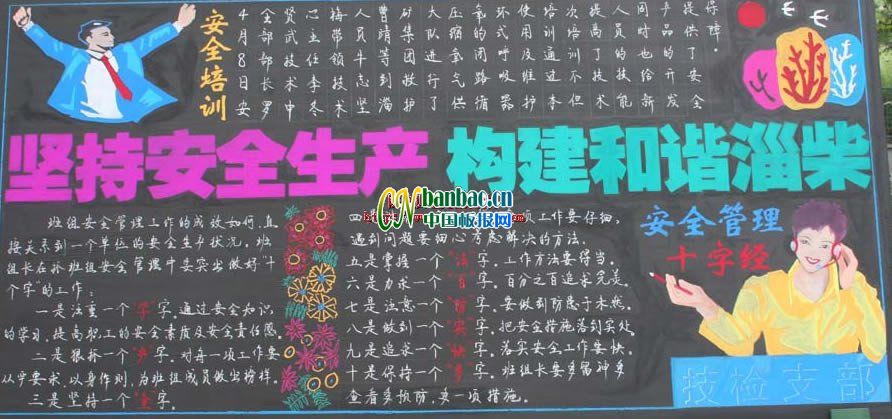 安全培训
4月8日安
全部部长罗
贤武技术中
心主任李冬
梅带领技术
员牛志坚
曹靖等到淄
矿集团救护
大队进行了
压缩氧气供
氧的闭路循
环式呼吸器
使用及维护
培训通过本
次培训不但
提高了技术
人员的技能
同时也给新
产品的开发
提供了安全
保障。
坚持安全生产 构建和谐淄柴
班组安全管理工作的成效如何,直
接关系到一个单位的安全生产状况。班
组长在抓班组安全管理中要突出做好“十
个字”的工作:
一是注重一个“学”字。通过安全知识
的学习,提高职工的安全素质及安全责任感。
二是狠抓一个“严”字。对每一项工作要
从严要求,以身作则,为班组成员做出榜样。
三是坚持一个“全”字。
四
项工作要仔细,
遇到问题要细心考虑解决的方法。
五是掌握一个“法”字。工作方法要得当。
六是力求一个“百”字。百分之百追求完美。
七是注意一个“防”字。要做到防患于未然。
八是做到一个“实”字。把安全措施落到实处。
九是追求一个“快”字。落实安全工作要快。
十是保持一个“多”字。班组长要多留神多
查看多预防,多一项措施。
banbac.cn
中国板报网
安全管理
十字经
技检支部